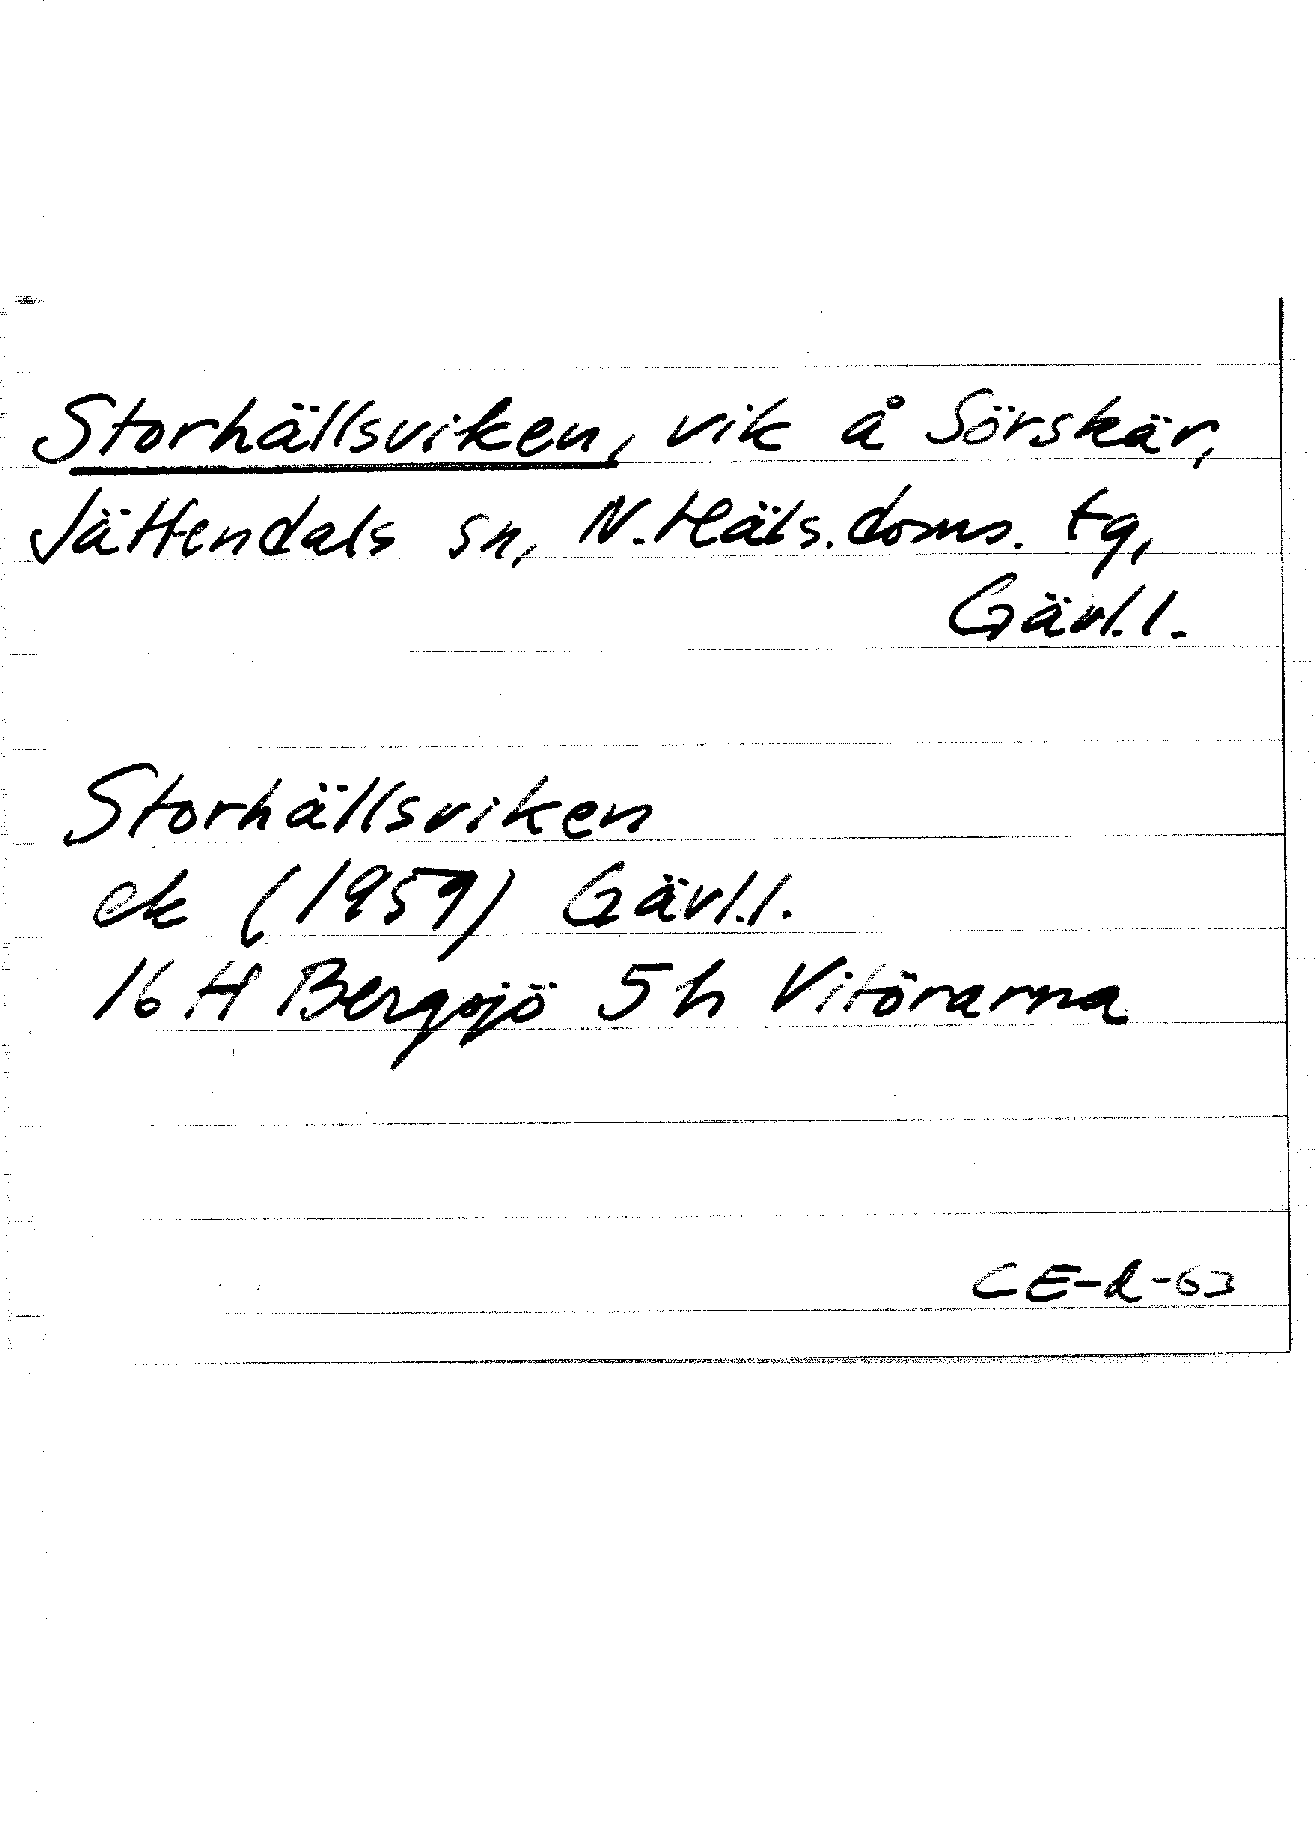 Storhällsviken, vik å Sörskär,
Jättendals sn, N. Häls. doms. tg,
Gävl.l.
Storhällsviken
ek (1959) Gävl.l.
16 H Bergsjö 5 h Vitörarna
CE-d-63